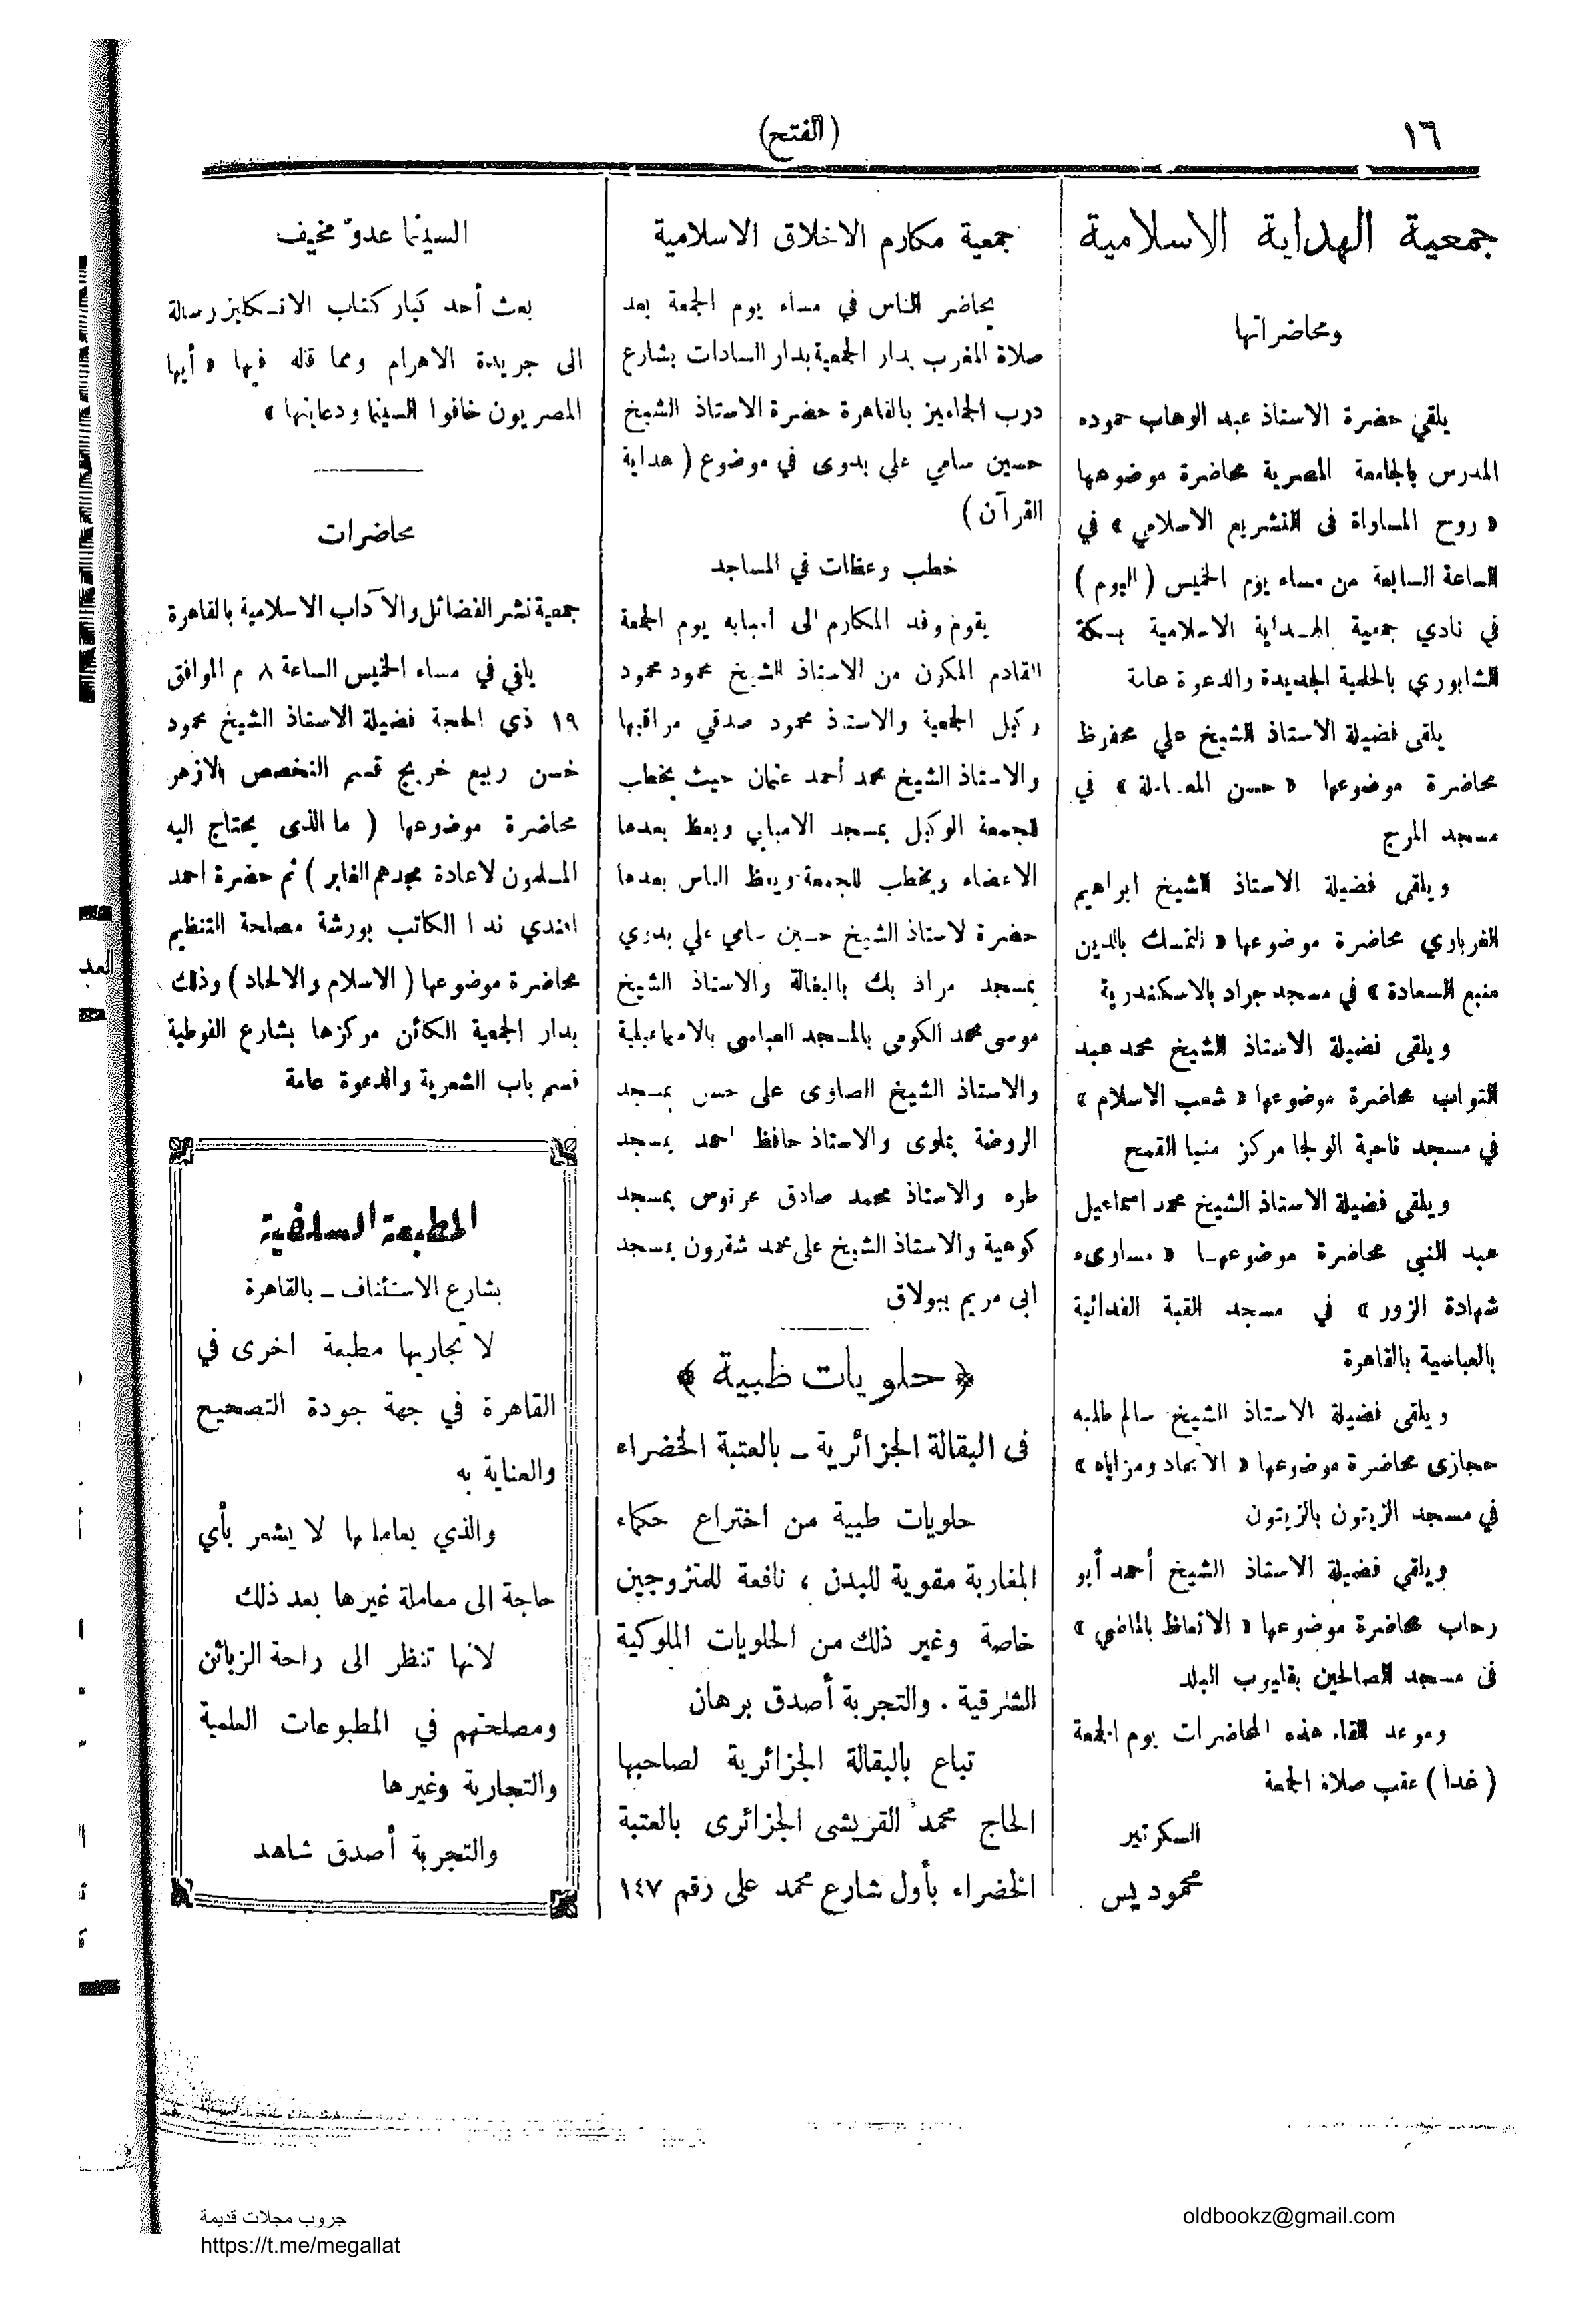 ١٦
(الفتح)
جمعية الهداية الاسلامية
ومحاضراتها
يلقي حضرة الاستاذ عبد الوهاب حموده
المدرس بالجامعة المصرية محاضرة موضوعها
« روح المساواة فى التشريع الاسلامي » في
الساعة السابعة من مساء يوم الخميس ( اليوم )
في نادي جمعية الهداية الاسلامية بسكة
الشابوري بالحلمية الجديدة والدعوة عامة
يلقى فضيلة الاستاذ الشيخ علي محفوظ
محاضرة موضوعها « حسن المعاملة » في
مسجد المرج
ويلقى فضيلة الاستاذ الشيخ ابراهيم
الغرباوي محاضرة موضوعها « التمسك بالدين
منبع السعادة » في مسجد جراد بالاسكندرية
ويلقى فضيلة الاستاذ الشيخ محمد عبد
التواب محاضرة موضوعها « شعب الاسلام »
في مسجد ناحية الولجا مركز منيا القمح
ويلقى فضيلة الاستاذ الشيخ محمد اسماعيل
عبد النبي محاضرة موضوعها « مساوىء
شهادة الزور » في مسجد القبة الفدائية
بالعباسية بالقاهرة
ويلقى فضيلة الاستاذ الشيخ سالم طلبه
حجازى محاضرة موضوعها « الاتحاد ومزاياه »
في مسجد الزيتون بالزيتون
ويلقي فضيلة الاستاذ الشيخ أحمد أبو
رحاب محاضرة موضوعها « الاتعاظ بالماضي »
فى مسجد الصالحين بقليوب البلد
وموعد القاء هذه المحاضرات يوم الجمعة
( غدا ) عقب صلاة الجمعة
السكرتير
محمود يس
جمعية مكارم الاخلاق الاسلامية
يحاضر الناس في مساء يوم الجمعة بعد
صلاة المغرب بدار الجمعية بدار السادات بشارع
درب الجماميز بالقاهرة حضرة الاستاذ الشيخ
حسين سامي علي بدوى في موضوع ( هداية
القرآن )
خطب وعظات في المساجد
يقوم وفد المكارم الى امبابه يوم الجمعة
القادم المكون من الاستاذ الشيخ محمود محمود
وكيل الجمعية والاستاذ محمود صدقي مراقبها
والاستاذ الشيخ محمد أحمد عثمان حيث يخطب
للجمعة الوكيل بمسجد الامبابي ويعظ بعدها
الاعضاء ويخطب للجمعة ويعظ الناس بعدها
حضرة الاستاذ الشيخ حسين سامي علي بدوي
بمسجد مراد بك بالبغالة والاستاذ الشيخ
موسى محمد الكومى بالمسجد العباسى بالاسماعيلية
والاستاذ الشيخ الصاوى على حسن بمسجد
الروضة بملوى والاستاذ حافظ احمد بمسجد
طره والاستاذ محمد صادق عرنوس بمسجد
كوهية والاستاذ الشيخ على محمد شقرون بمسجد
ابى مريم ببولاق
﴿ حلويات طبية ﴾
فى البقالة الجزائرية ـ بالعتبة الخضراء
حلويات طبية من اختراع حكماء
المغاربة مقوية للبدن ، نافعة للمتزوجين
خاصة وغير ذلك من الحلويات الملوكية
الشرقية . والتجربة أصدق برهان
تباع بالبقالة الجزائرية لصاحبها
الحاج محمد القريشى الجزائرى بالعتبة
الخضراء بأول شارع محمد على رقم ١٤٧
السينما عدوّ مخيف
بعث أحد كبار كتاب الانكليز رسالة
الى جريدة الاهرام ومما قاله فيها « أيها
المصريون خافوا السينما ودعايتها »
محاضرات
جمعية نشر الفضائل والآداب الاسلامية بالقاهرة
يلقي في مساء الخميس الساعة ٨ م الموافق
١٩ ذي الحجة فضيلة الاستاذ الشيخ محمود
حسن ربيع خريج قسم التخصص بالازهر
محاضرة موضوعها ( ما الذى يحتاج اليه
المسلمون لاعادة مجدهم الغابر ) ثم حضرة احمد
افندي ندا الكاتب بورشة مصلحة التنظيم
محاضرة موضوعها ( الاسلام والالحاد ) وذلك
بدار الجمعية الكائن مركزها بشارع الغوطية
قسم باب الشعرية والدعوة عامة
المطبعة السلفية
بشارع الاستئناف ـ بالقاهرة
لا تجاريها مطبعة اخرى في
القاهرة في جهة جودة التصحيح
والعناية به
والذي يعاملها لا يشعر بأي
حاجة الى معاملة غيرها بعد ذلك
لانها تنظر الى راحة الزبائن
ومصلحتهم في المطبوعات العلمية
والتجارية وغيرها
والتجربة أصدق شاهد
العد
جروب مجلات قديمة
https://t.me/megallat
oldbookz@gmail.com